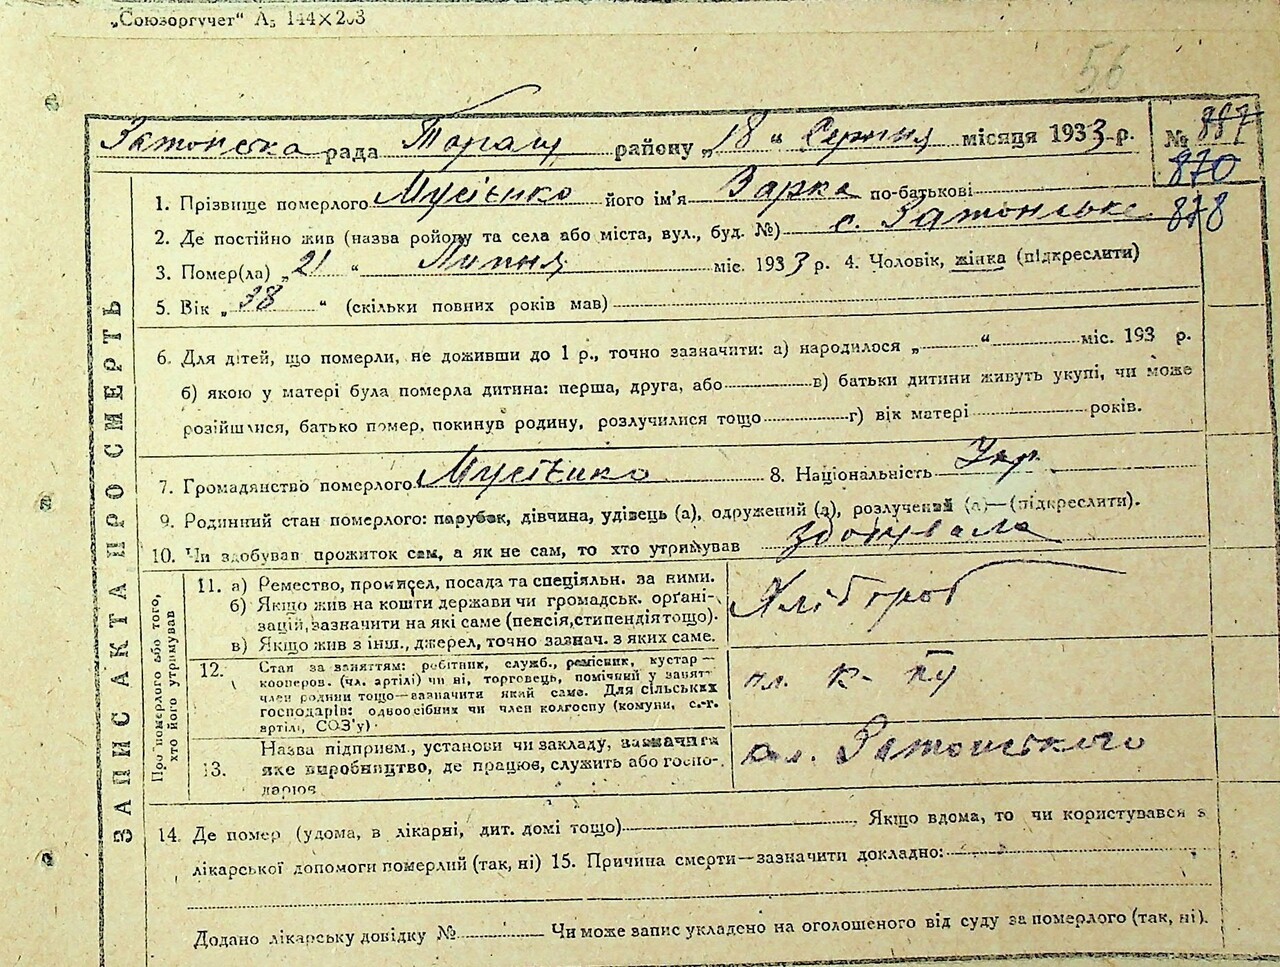 „Союзоргучет“ А₅ 144×203
56
Затонська рада Таращ району „18“ Серпня місяця 1933-р. № 887
870
878
1. Прізвище померлого Мусієнко його ім'я Варка по-батькові
2. Де постійно жив (назва району та села або міста, вул., буд. №) с. Затонське
3. Помер(ла) „21“ Липня міс. 1933 р. 4. Чоловік, жінка (підкреслити)
5. Вік „38“ (скільки повних років мав)
6. Для дітей, що померли, не доживши до 1 р., точно зазначити: а) народилося „ “ міс. 193 р.
б) якою у матері була померла дитина: перша, друга, або в) батьки дитини живуть укупі, чи може
розійшлися, батько помер, покинув родину, розлучилися тощо г) вік матері років.
7. Громадянство померлого Мусієнко 8. Національність Укр
9. Родинний стан померлого: парубок, дівчина, удівець (а), одружений (а), розлучений (а)—(підкреслити).
10. Чи здобував прожиток сам, а як не сам, то хто утримував здобувала
ЗАПИС АКТА ПРО СМЕРТЬ
Про померлого або того,
хто його утримував
11. а) Ремество, промисел, посада та спеціяльн. за ними.
б) Якщо жив на кошти держави чи громадськ. орґані-
зацій, зазначити на які саме (пенсія, стипендія тощо).
в) Якщо жив з інш., джерел, точно зазнач. з яких саме.
Хлібороб
12. Стан за заняттям: робітник, служб., ремісник, кустар—
кооперов. (чл. артілі) чи ні, торговець, помічний у занят.
член родини тощо—зазначити який саме. Для сільських
господарів: одноосібних чи член колгоспу (комуни, с.-г.
артілі, СОЗ'у).
чл. к-пу
13. Назва підприєм., установи чи закладу, зазначити
яке виробництво, де працює, служить або госпо-
дарює
Затонського
14. Де помер (удома, в лікарні, дит. домі тощо) Якщо вдома, то чи користувався з
лікарської допомоги померлий (так, ні) 15. Причина смерти—зазначити докладно:
Додано лікарську довідку № Чи може запис укладено на оголошеного від суду за померлого (так, ні).